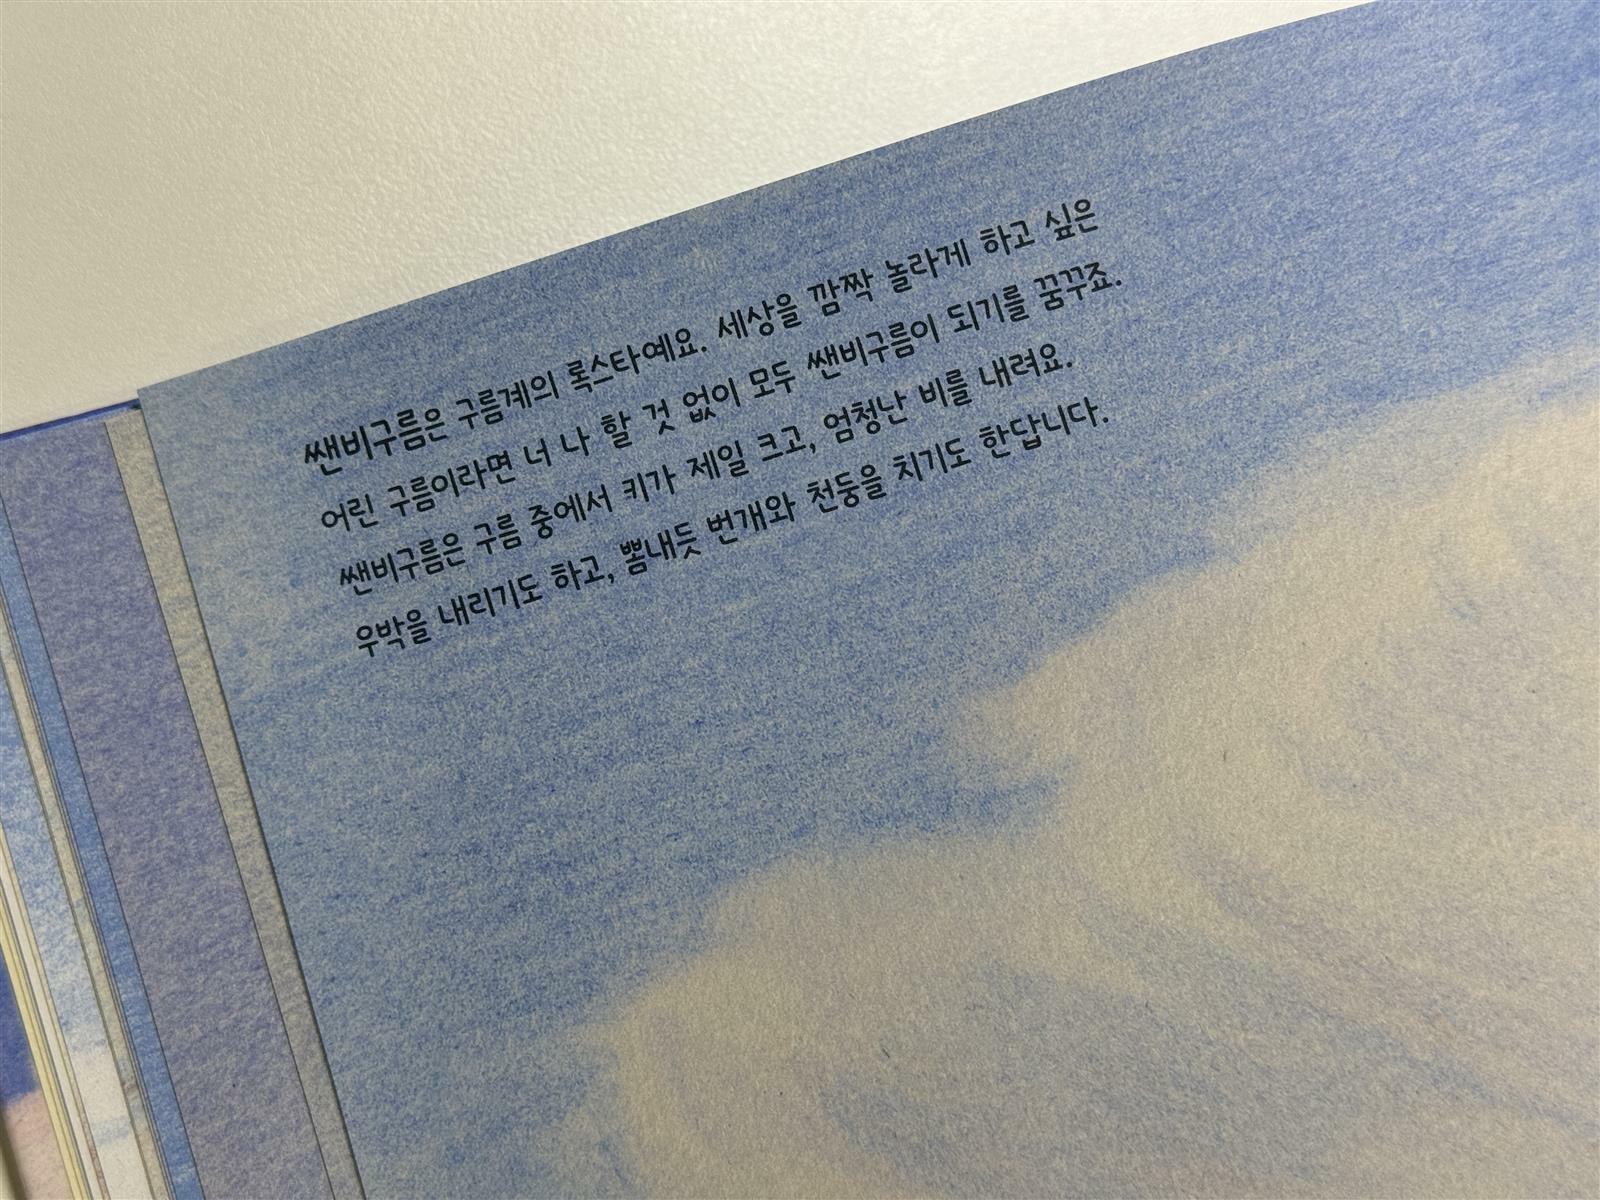 쌘비구름은 구름계의 록스타예요. 세상을 깜짝 놀라게 하고 싶은
어린 구름이라면 너 나 할 것 없이 모두 쌘비구름이 되기를 꿈꾸죠.
쌘비구름은 구름 중에서 키가 제일 크고, 엄청난 비를 내려요.
우박을 내리기도 하고, 뽐내듯 번개와 천둥을 치기도 한답니다.